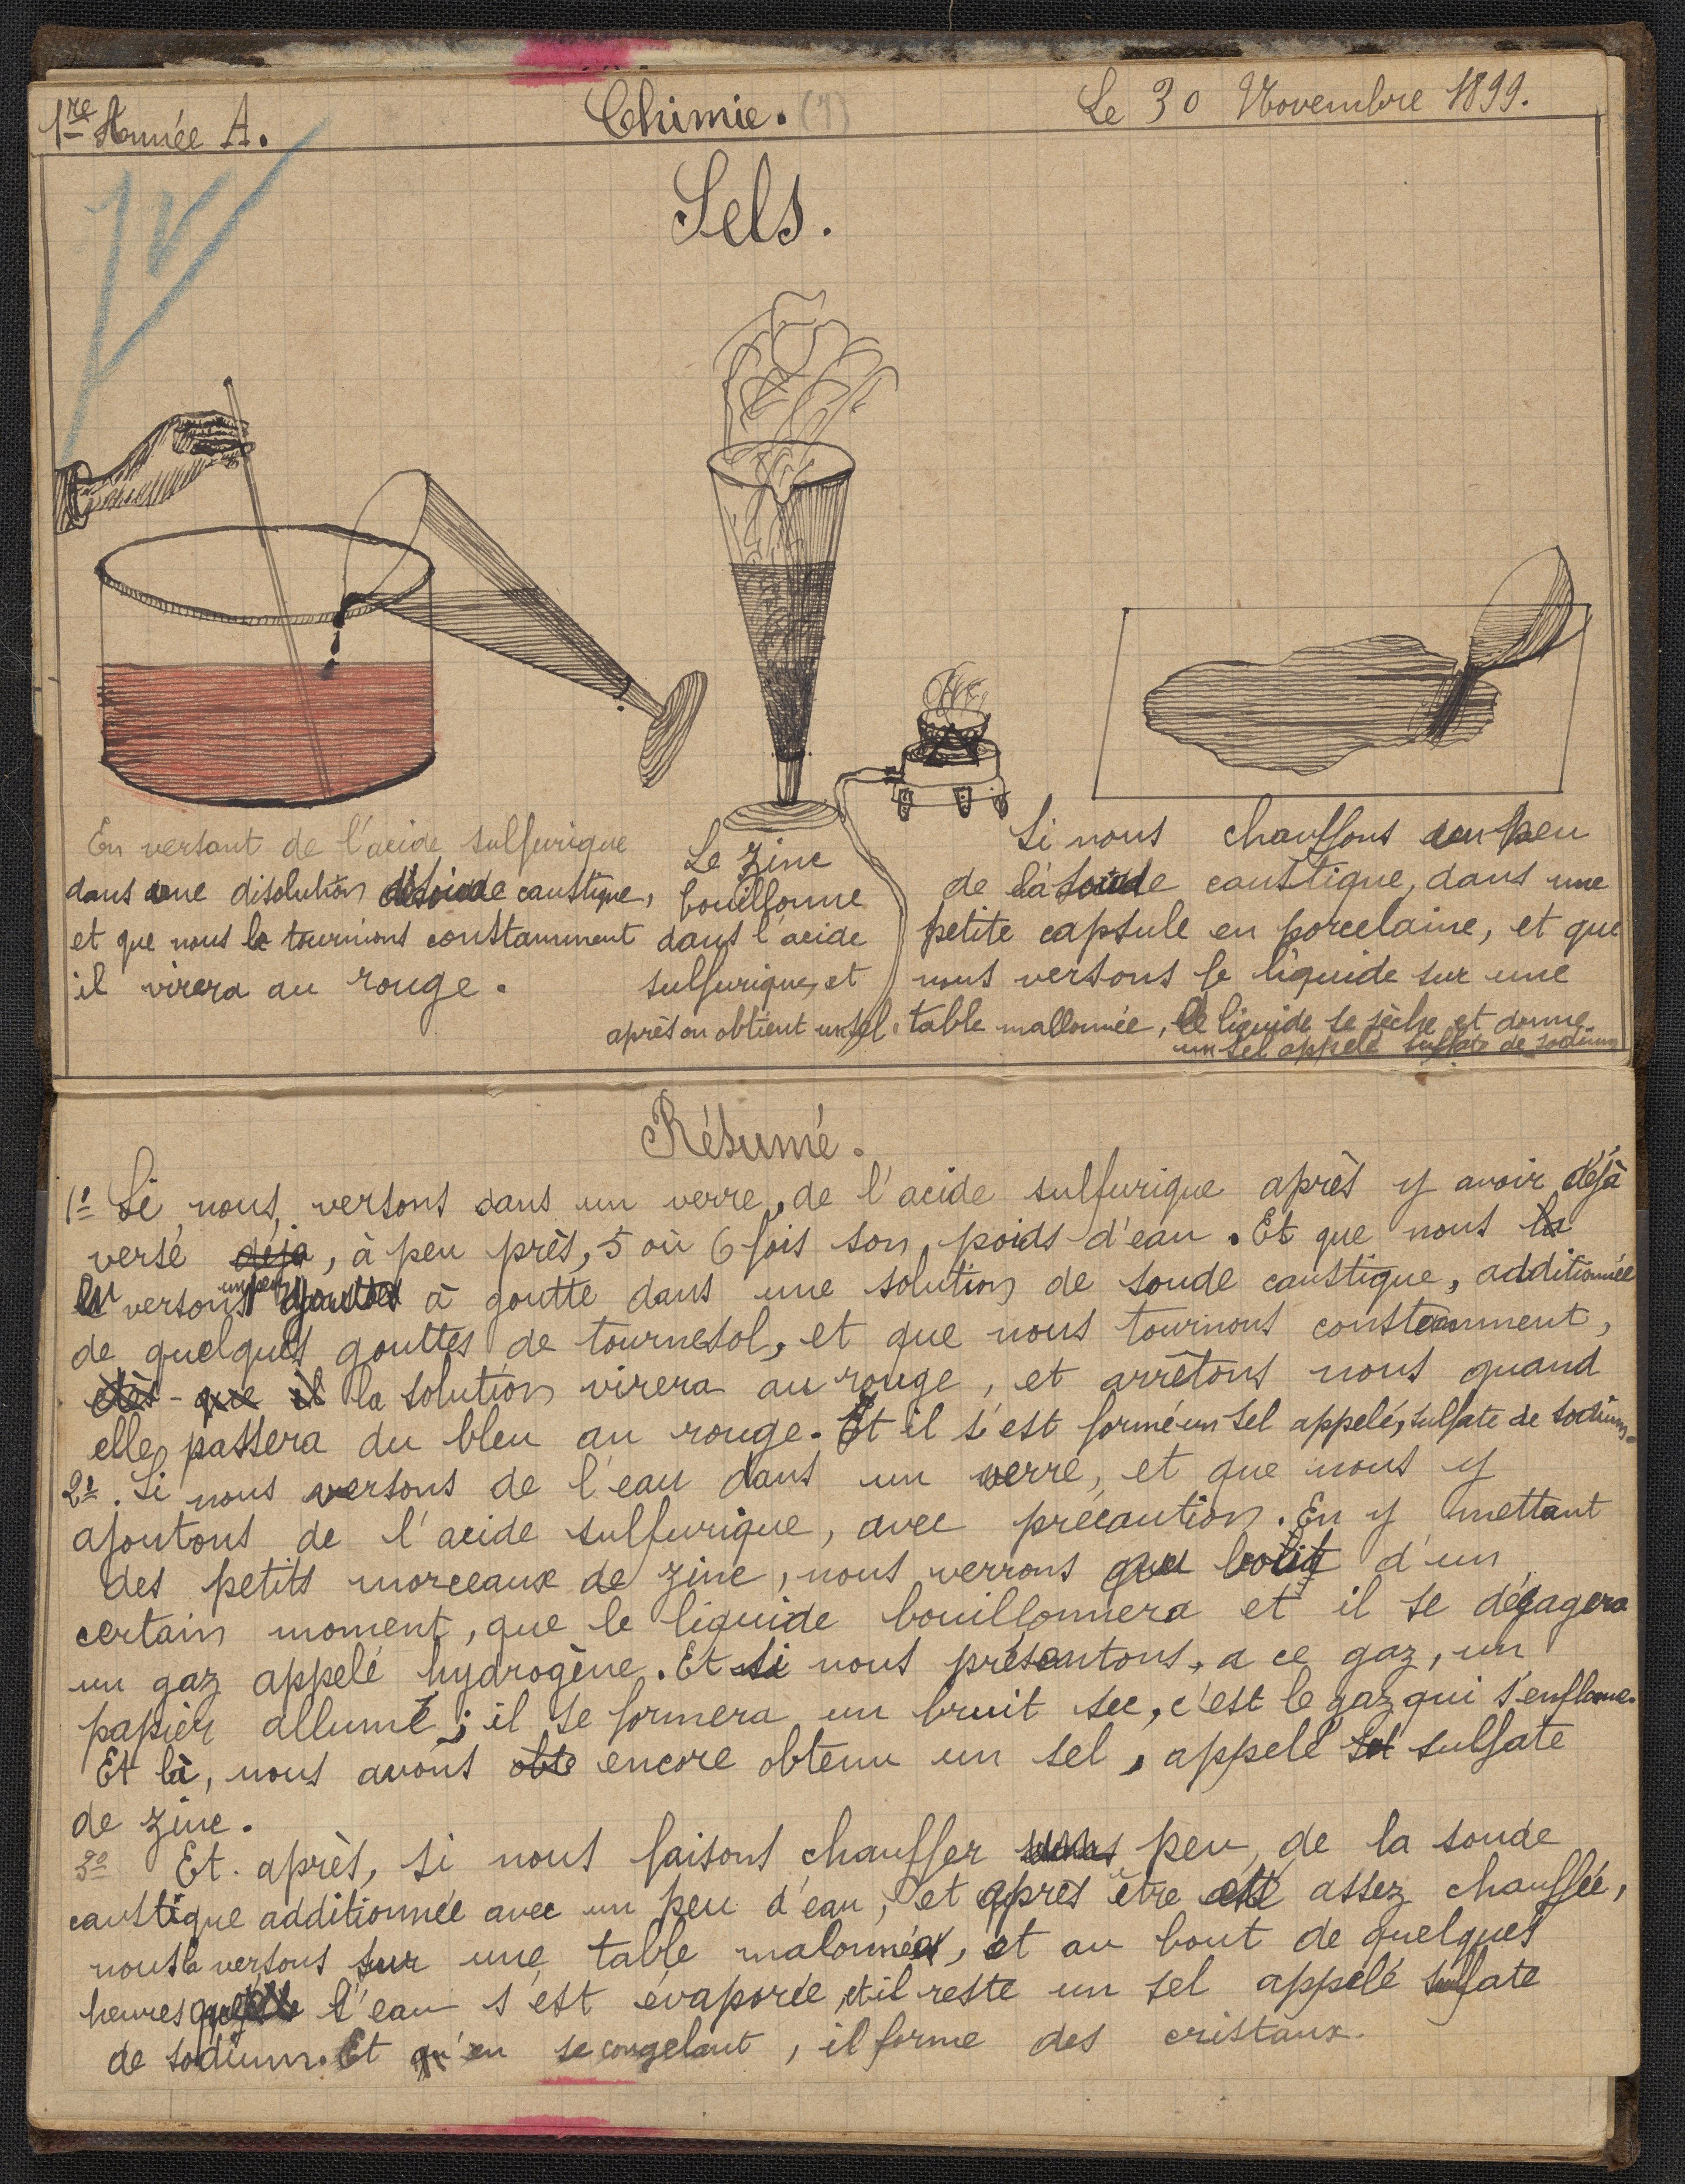 1re Année A.
Chimie. (7)
Le 30 Novembre 1899.
Sels.
En versant de l'acide sulfurique
dans une disolution de soude caustique,
et que nous le tournions constamment
il virera au rouge.
Le zinc
bouillonne
dans l'acide
sulfurique, et
après on obtient un sel.
Si nous chauffons un peu
de la soude caustique, dans une
petite capsule en porcelaine, et que
nous versons le liquide sur une
table mallonnée, le liquide se sèche et donne
un sel appelé sulfate de sodium
Résumé.
1º Si nous versons dans un verre, de l'acide sulfurique après y avoir déjà
versé déja, à peu près, 5 où 6 fois son poids d'eau. Et que nous la
en versons un peu goutte à goutte dans une solution de soude caustique, additionnée
de quelques gouttes de tournesol, et que nous tournons constamment,
dès - que il la solution virera au rouge, et arrêtons nous quand
elle passera du bleu au rouge. Et il s'est formé un sel appelé, sulfate de sodium.
2º. Si nous versons de l'eau dans un verre, et que nous y
ajoutons de l'acide sulfurique, avec précaution. En y mettant
des petits morceaux de zinc, nous verrons d'un
certain moment, que le liquide bouillonnera et il se dégagera
un gaz appelé hydrogène. Et si nous présentons, a ce gaz, un
papier allumé; il se formera un bruit sec, c'est le gaz qui s'enflame.
Et là, nous avons obte encore obtenu un sel, appelé sel sulfate
de zinc.
3º Et. après, si nous faisons chauffer peu, de la soude
caustique additionnée avec un peu d'eau, et après être été assez chauffée,
nous la versons sur une table malonnée, et au bout de quelques
heures l'eau s'est évaporée, et il reste un sel appelé sulfate
de sodium. Et qu'en se congelant, il forme des cristaux.